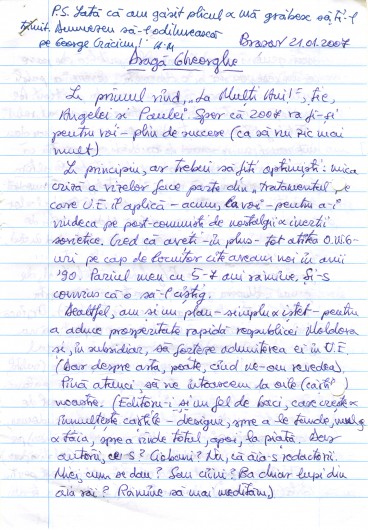 P.S. Iată că am găsit plicul și mă grăbesc să ți-l
trimit. Dumnezeu să-l odihnească
pe George Crăciun! A.M.
Brașov 21.01.2007
Dragă Gheorghe
În primul rînd, „La Mulți Ani!”, ție,
Angelei și Paulei. Sper că 2007 va fi - și
pentru voi - plin de succese (ca să nu zic mai
mult)
În principiu, ar trebui să fiți optimiști: mica
criză a vizelor face parte din „tratamentul” pe
care U.E. îl aplică - acum, la voi - pentru a-i
vindeca pe post-comuniști de nostalgii și inerții
sovietice. Cred că aveți - în plus - tot atîtea O.N.G-
uri pe cap de locuitor cîte aveam noi în anii
'90. Pariul meu cu 5-7 ani rămîne, și-s
convins că o să-l cîștig.
Dealtfel, am și un plan - simplu și istet - pentru
a aduce prosperitate rapidă republicii Moldova
și, în subsidiar, să forțeze admiterea ei în U.E.
(Dar despre asta, poate, cînd ne-om revedea).
Pînă atunci să ne întoarcem la oile (cărțile)
noastre. (Editorii-s un fel de baci, care crește și
înmulțește cărțile - desigur, spre a le tunde, mulge
și tăia, spre a vinde totul, apoi, la piață. Dar
autorii, ce-s? Ciobani? Nu, că ăia-s redactorii.
Miei, cum se dau? Sau cîini? Ba chiar lupi din
ăia răi? Rămîne să mai medităm)